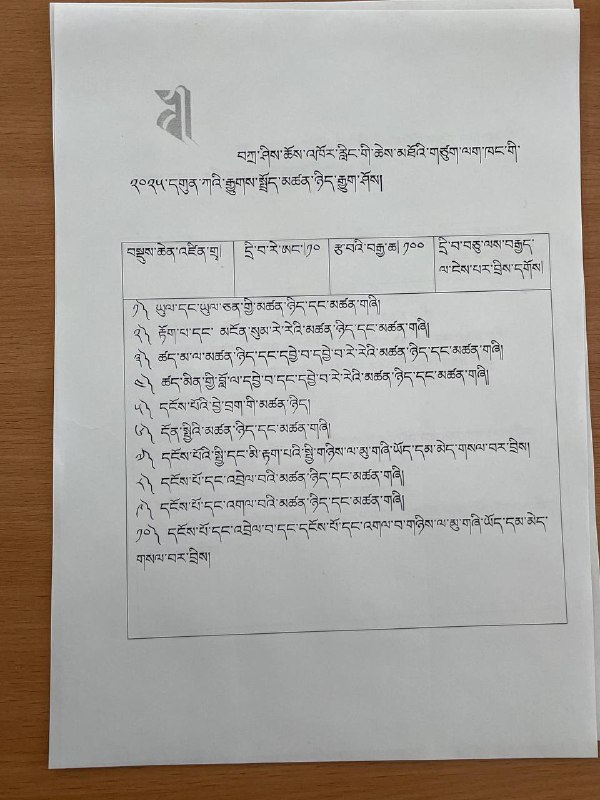 བཀྲ་ཤིས་ཆོས་འཁོར་གླིང་གི་ཆེས་མཐོའི་གཙུག་ལག་ཁང་གི་
༢༠༢༥་དགུན་ཀའི་རྒྱུགས་སྤྲོད་མཚན་ཉིད་རྒྱུག་ཤོས།
བསྡུས་ཆེན་འཛིན་གྲྭ།
དྲི་བ་རེ་ཨང་།༡༠
རྩ་བའི་བརྒྱ་ཆ། ༡༠༠
དྲི་བ་བཅུ་ལས་བརྒྱད་
ལ་ངེས་པར་བྲིས་དགོས།
༡༽ ཡུལ་དང་ཡུལ་ཅན་གྱི་མཚན་ཉིད་དང་མཚན་གཞི།
༢༽ རྟོག་པ་དང་ མངོན་སུམ་རེ་རེའི་མཚན་ཉིད་དང་མཚན་གཞི།
༣༽ ཚད་མ་ལ་མཚན་ཉིད་དང་དབྱེ་བ་དབྱེ་བ་རེ་རེའི་མཚན་ཉིད་དང་མཚན་གཞི།
༤༽ ཚད་མིན་གྱི་བློ་ལ་དབྱེ་བ་དང་དབྱེ་བ་རེ་རེའི་མཚན་ཉིད་དང་མཚན་གཞི།
༥༽ དངོས་པོའི་བྱེ་བྲག་གི་མཚན་ཉིད།
༦༽ དོན་སྤྱིའི་མཚན་ཉིད་དང་མཚན་གཞི།
༧༽ དངོས་པོའི་སྤྱི་དང་མི་རྟག་པའི་སྤྱི་གཉིས་ལ་མུ་གཞི་ཡོད་དམ་མེད་གསལ་བར་བྲིས།
༨༽ དངོས་པོ་དང་འབྲེལ་བའི་མཚན་ཉིད་དང་མཚན་གཞི།
༩༽ དངོས་པོ་དང་འགལ་བའི་མཚན་ཉིད་དང་མཚན་གཞི།
༡༠༽ དངོས་པོ་དང་འབྲེལ་བ་དང་དངོས་པོ་དང་འགལ་བ་གཉིས་ལ་མུ་གཞི་ཡོད་དམ་མེད་
གསལ་བར་བྲིས།